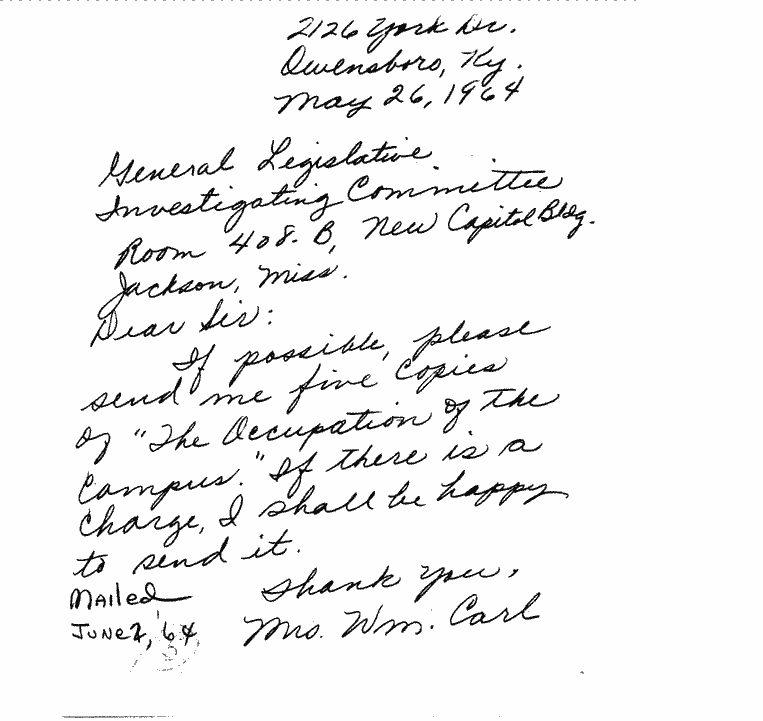 2126 York Dr.
Owensboro, Ky.
May 26, 1964
General Legislative
Investigating Committee
Room 408-B, New Capitol Bldg.
Jackson, Miss.
Dear Sir:
If possible, please
send me five copies
of "The Occupation of the
Campus." If there is a
charge, I shall be happy
to send it.
Thank you,
Mrs. Wm. Carl
Mailed
June 2, '64